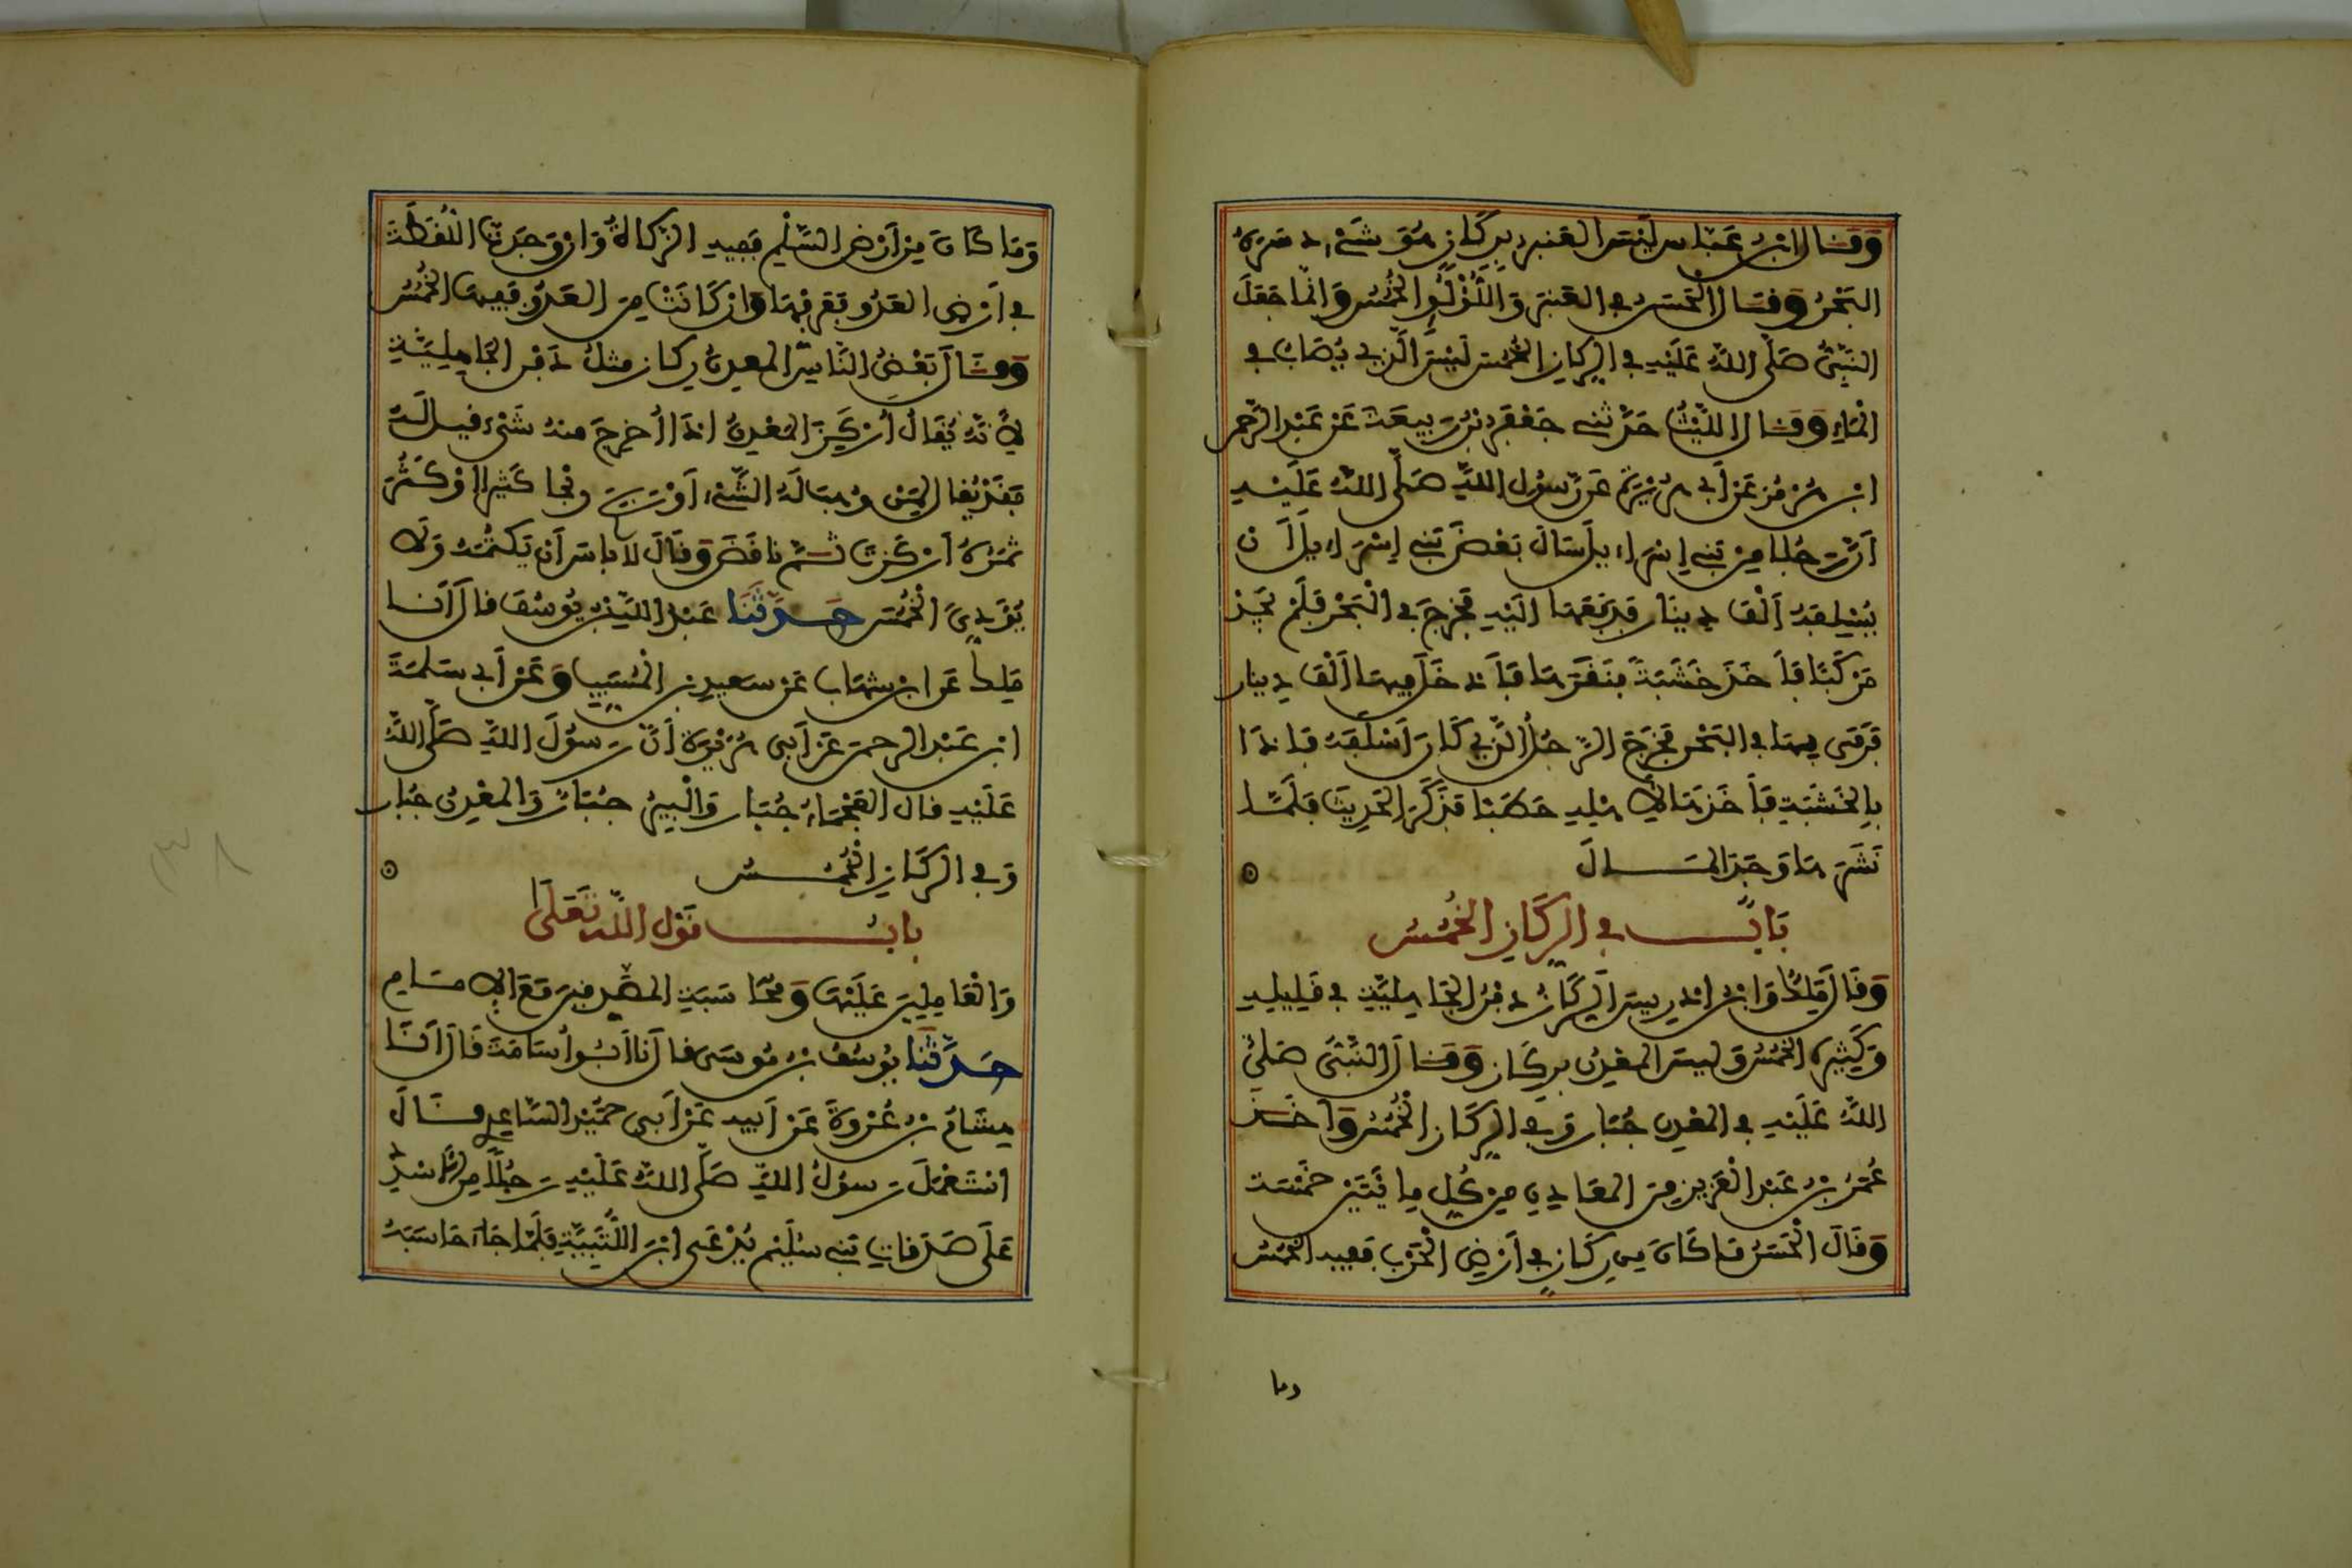 وَقَالَ ابْنُ عَبَّاس لَيْسَ العَنبر بِرِكَازٍ هُوَ شَيْء دسَرَهُ
البَحْرُ وَقَالَ الْحَسَنُ في العَنبَرِ وَاللُّؤْلُؤِ الخُمُسُ وَانَّمَا جَعَلَ
النَّبِيُّ صَلَّى اللهُ عَلَيْهِ في الرِّكَازِ الخُمُسَ لَيْسَ الَّذِي يُصَابُ في
الْمَاءِ وَقَالَ اللَّيْثُ حَدَّثَنِي جَعْفَرُ بْنُ رَبِيعَةَ عَنْ عَبْدِ الرَّحْمٰن
ابنِ هُرْمُز عَنْ أَبِي هُرَيْرَةَ عَنْ رَّسُولِ اللهِ صَلَّى اللهُ عَلَيْهِ
أَنَّ رَجُلا مِنْ بَنِي إِسْرَاءِيلَ سَأَلَ بَعْضَ بَنِي إِسْرَاءِيلَ أَن
يُسْلِفَهُ أَلْفَ دِينَار فَدَفَعَهَا الَيْهِ فَخَرَجَ في الْبَحْرِ فَلَمْ يَجِدْ
مَرْكَبًا فَأَخَذَ خَشَبَةً فَنَقَرَهَا فَأَدْخَلَ فِيهَا أَلْفَ دِينار
فَرَمَى بِهَا في البَحْرِ فَخَرَجَ الرَّجُلُ الَّذِي كَانَ أَسْلَفَهُ فَإِذَا
بِالخَشَبَةِ فَأَخَذَهَا لِأَهْلِهِ حَطَبًا فَذَكَرَ الحَدِيثَ فَلَمَّا
نَشَرَهَا وَجَدَ المَالَ
بَابٌ في الرِّكَازِ الخُمُسُ
وَقَالَ مَالِكٌ وَابْنُ إِدْرِيسَ الرِّكَازُ دِفْنُ الجَاهِلِيَّةِ فِي قَلِيلِهِ
وَكَثِيرِهِ الْخُمُسُ وَلَيسَ المَعْدِنُ بِرِكَاز وَقَالَ النَّبِيُّ صَلَّى
اللهُ عَلَيْهِ في المَعْدِنِ جُبَار وَفِي الرِّكَازِ الْخُمُسُ وَأَخَذَ
عُمَرُ بْنُ عَبْدِ الْعَزِيزِ مِنَ المَعَادِنِ مِنْ كُلِّ مِائَتَيْنِ خَمْسَةً
وَقَالَ الْحَسَنُ مَا كَانَ مِن رِكَازٍ في أَرْضِ الْحَرْبِ فَفِيهِ الْخُمُسُ
وما
وَمَا كَانَ مِنْ أَرْضِ السِّلْمِ فَفِيهِ الزَّكَاةُ وَإنْ وَجَدتَّ اللُّقَطَةَ
في أَرْضِ العَدُوِّ فَعَرِّفْهَا وَإنْ كَانَتْ مِنَ العَدُوِّ فَفِيهَا الْخُمُسُ
وَقَالَ بَعْضُ النَّاسِ المَعدِنُ رِكَاز مثلُ دِفْنِ الجَاهِلِيَّةِ
لِأَنَّهُ يُقَالُ أَرْكَزَ المَعْدِنُ إذَا أُخرِجَ مِنهُ شَيْء قيل لَهُ
فَقَدْ يُقَالُ لِمَنْ وُهِبَ لَهُ الشَّيْءُ أَوْ رَبِحَ رِبْحا كَثِيرا أوْ كَثُرَ
ثَمَرُهُ أَرْكَزْتَ ثُمَّ نَاقَضَ وَقَالَ لا بَاسَ أَنْ يَكْتُمَهُ وَلَا
يُؤَدِّيَ الْخُمُسَ حَدَّثَنَا عَبْدُ اللهِ بْنُ يُوسُفَ قَالَ أَنَا
مَلِكٌ عَنِ ابْنِ شِهَابٍ عَنْ سَعِيدِ بْنِ الْمُسَيِّبِ وَعَنْ أَبِي سَلَمَةَ
ابْنِ عَبْدِ الرحمن عَنْ أَبِي هُرَيْرَةَ أَنَّ رَسُولَ اللهِ صَلَّى اللهُ
عَلَيْهِ قال العَجْمَاءُ جُبَار وَالْبِيرُ جُبَارٌ وَالمَعْدِنُ جُبَار
وَفي الرِّكَازِ الْخُمُسُ
بابُ قَوْلِ اللهِ تَعَلَى
وَالْعَامِلِينَ عَلَيْهَا وَمُحَاسَبَةِ المُصَدِّقِينَ مَعَ الإِمَامِ
حَدَّثَنَا يُوسُفُ بْنُ مُوسَى قال أَنا أَبُو أُسَامَةَ قَالَ أَنَا
هِشَامُ بْنُ عُرْوَةَ عَنْ أَبِيهِ عَنْ أَبِي حُمَيْدٍ السَّاعِدِي قَالَ
اسْتَعْمَلَ رَسُولُ اللهِ صَلَّى اللهُ عَلَيْهِ رَجُلًا مِنَ الأَسْدِ
عَلَى صَدَقَاتِ بَنِي سُلَيْمٍ يُدْعَى ابْنَ اللُّتْبِيَّةِ فَلَمَّا جَاءَ حَاسَبَهُ